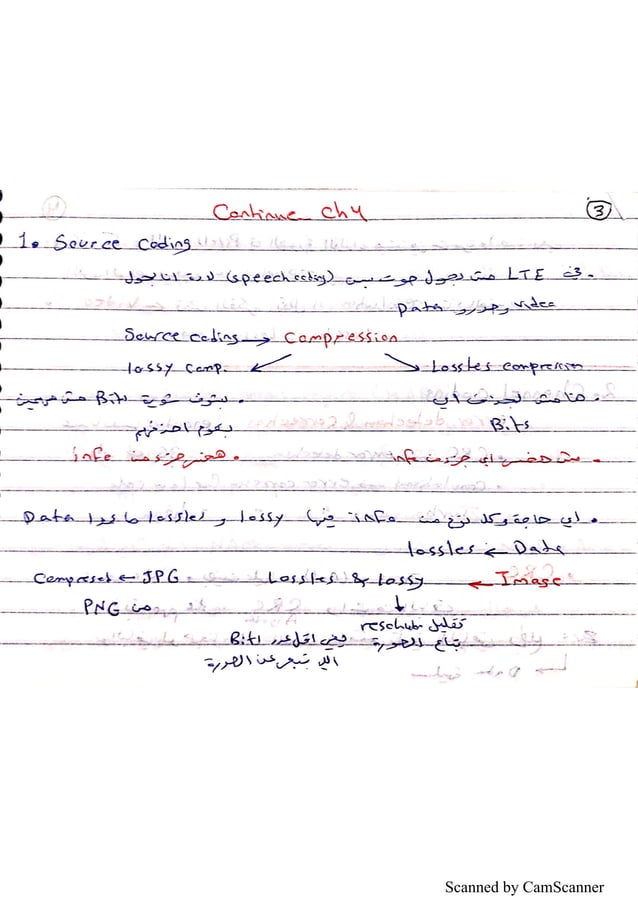 Continue Ch4
3
1. Source Coding
. في LTE مش بحول صوت بس (speech coding) لازم انا بحول
video وصور و Data
Source coding → Compression
lossy Comp. Lossles compression
. هنا مش بحذف أي . بشوف شوية Bits مش مهمين
Bits بقوم احذفهم
. مش هخسر اي جزء من info . هخسر جزء من info
. اي حاجة وكل نوع من info فيها lossy و lossles ما عدا Data
Data → lossles
Image → Lossles & lossy JPG → Compreset
من PNG
تقليل resolution
بتاع الصورة يعني اقل عدد Bits
اللي بتعبر عن الصورة
Scanned by CamScanner